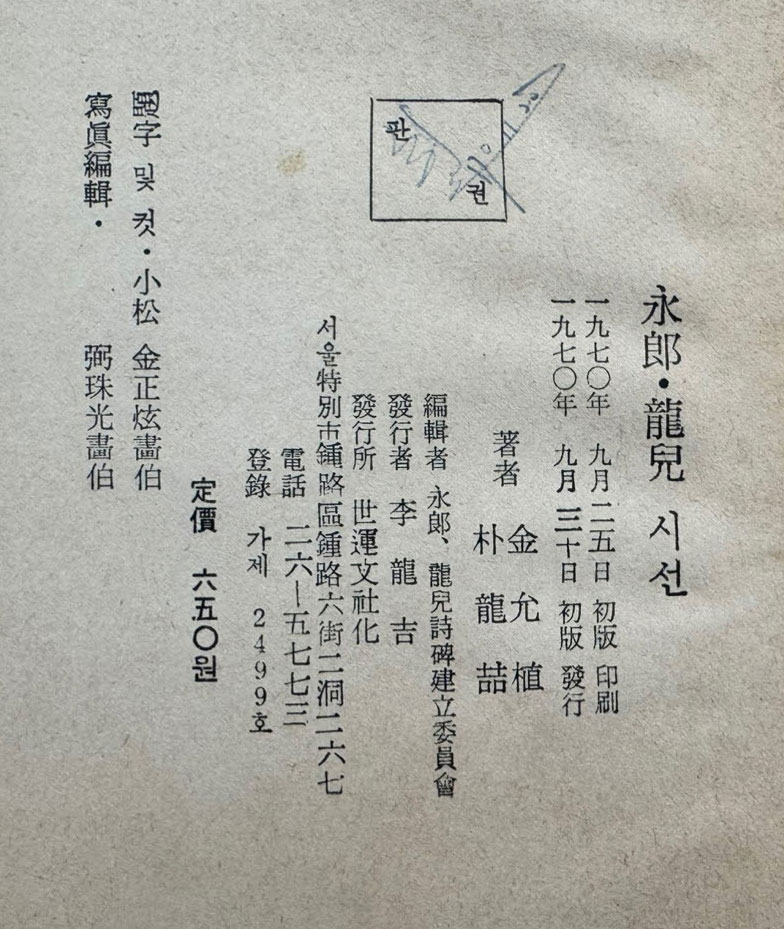 永郎・龍兒 시선
一九七〇年 九月 二五日 初版 印刷
一九七〇年 九月 三十日 初版 發行
著者 金允植
朴龍喆
編輯者 永郎、龍兒詩碑建立委員會
發行者 李龍吉
發行所 世運文社化
서울特別市鍾路區鍾路六街二洞二六七
電話 二六—五七七三
登錄 가제 2499호
定價 六五〇원
판권
題字 및 컷・小松 金正炫畵伯
寫眞編輯・ 弼珠光畵伯